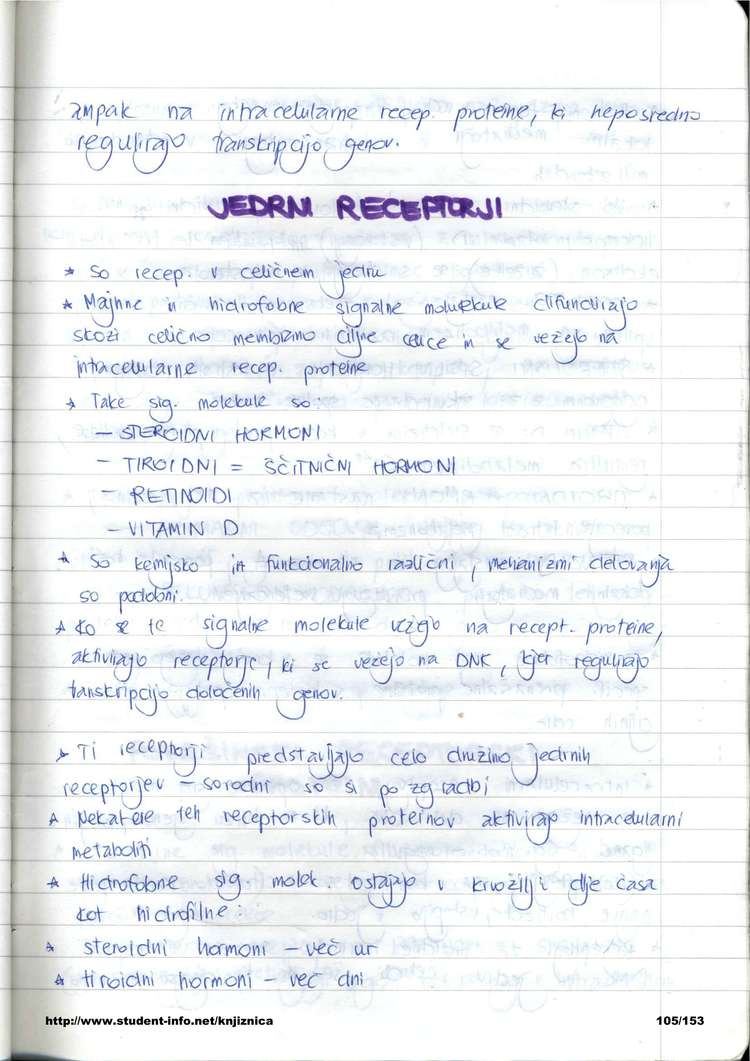 ampak na intracelularne recep. proteine, ki neposredno
regulirajo transkripcijo genov.
JEDRNI RECEPTORJI
* So recep. v celičnem jedru
* Majhne in hidrofobne signalne molekule difundirajo
skozi celično membrano ciljne celice in se vežejo na
intracelularne recep. proteine
* Take sig. molekule so:
- STEROIDNI HORMONI
- TIROIDNI = ŠČITNIČNI HORMONI
- RETINOIDI
- VITAMIN D
* So kemijsko in funkcionalno različni, mehanizmi delovanja
so podobni.
* Ko se te signalne molekule vežejo na recept. proteine,
aktivirajo receptorje, ki se vežejo na DNK, kjer regulirajo
transkripcijo določenih genov.
* Ti receptorji predstavljajo celo družino jedrnih
receptorjev - sorodni so si po zgradbi
* Nekatere teh receptorskih proteinov aktivirajo intracelularni
metaboliti
* Hidrofobne sig. molek. ostajajo v krvožilji dlje časa
kot hidrofilne:
* steroidni hormoni - več ur
* tiroidni hormoni - več dni
http://www.student-info.net/knjiznica 105/153